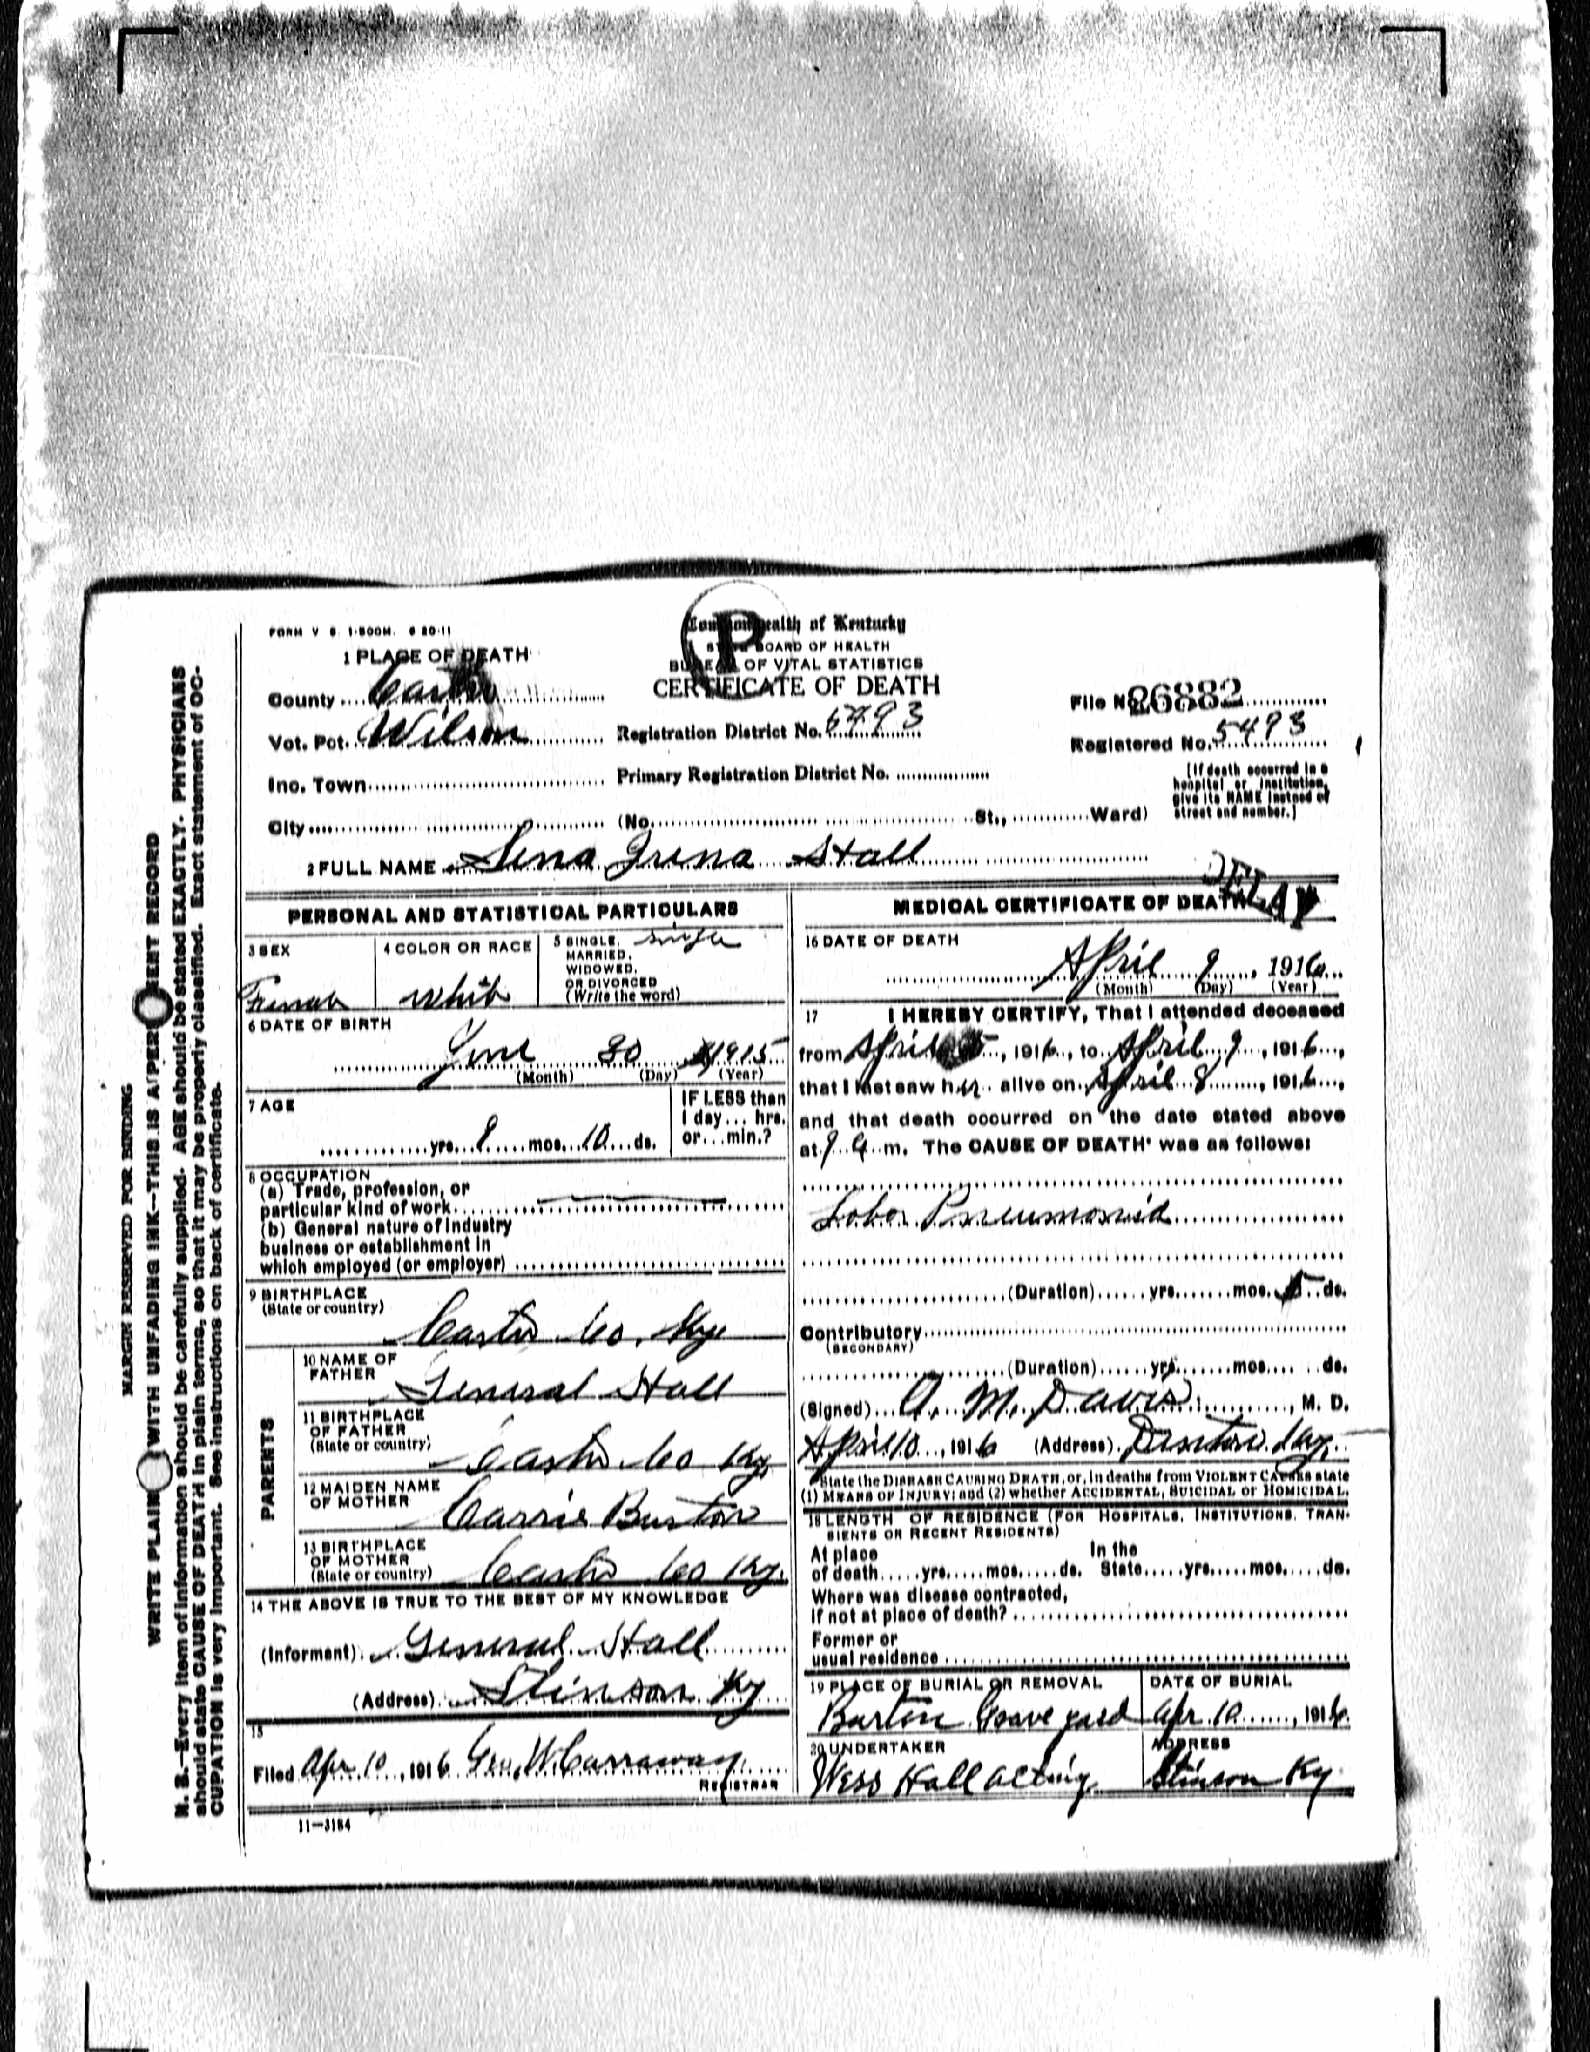 FORM V S. 1-500M. 6 20-11
Commonwealth of Kentucky
STATE BOARD OF HEALTH
BUREAU OF VITAL STATISTICS
CERTIFICATE OF DEATH
P
1 PLACE OF DEATH
County Carter
Vot. Pct. Wilson
Registration District No.
File No. 26882
Registered No. 5493
Inc. Town
Primary Registration District No.
[If death occurred in a hospital or institution, give its NAME instead of street and number.]
City (No. St., Ward)
2 FULL NAME Lena Irena Hall
DELAY
PERSONAL AND STATISTICAL PARTICULARS
3 SEX Female
4 COLOR OR RACE White
5 SINGLE, MARRIED, WIDOWED, OR DIVORCED (Write the word) single
6 DATE OF BIRTH
June 30 1915
(Month) (Day) (Year)
7 AGE
yrs. 9 mos. 10 ds.
IF LESS than 1 day... hrs. or... min.?
8 OCCUPATION
(a) Trade, profession, or
particular kind of work
(b) General nature of industry
business or establishment in
which employed (or employer)
9 BIRTHPLACE
(State or country)
Carter Co. Ky.
PARENTS
10 NAME OF FATHER General Hall
11 BIRTHPLACE OF FATHER (State or country) Carter Co Ky.
12 MAIDEN NAME OF MOTHER Carrie Burton
13 BIRTHPLACE OF MOTHER (State or country) Carter Co Ky.
14 THE ABOVE IS TRUE TO THE BEST OF MY KNOWLEDGE
(Informant) General Hall
(Address) Stinson Ky
15
Filed Apr 10, 1916 Geo. W. Carraway
REGISTRAR
11-3184
MEDICAL CERTIFICATE OF DEATH
16 DATE OF DEATH
April 9, 1916
(Month) (Day) (Year)
17 I HEREBY CERTIFY, That I attended deceased
from April 5, 1916, to April 9, 1916,
that I last saw her alive on April 8, 1916,
and that death occurred on the date stated above
at 9 a m. The CAUSE OF DEATH* was as follows:
Lobar Pneumonia
(Duration) yrs. mos. 5 ds.
Contributory
(SECONDARY)
(Duration) yrs. mos. ds.
(Signed) A. M. Davis, M. D.
April 10, 1916 (Address) Denton, Ky.
*State the DISEASE CAUSING DEATH, or, in deaths from VIOLENT CAUSES state
(1) MEANS OF INJURY; and (2) whether ACCIDENTAL, SUICIDAL or HOMICIDAL.
18 LENGTH OF RESIDENCE (FOR HOSPITALS, INSTITUTIONS, TRANSIENTS OR RECENT RESIDENTS)
At place of death yrs. mos. ds. In the State yrs. mos. ds.
Where was disease contracted,
if not at place of death?
Former or
usual residence
19 PLACE OF BURIAL OR REMOVAL Burton Grave yard
DATE OF BURIAL Apr. 10, 1916.
20 UNDERTAKER Wess Hall acting
ADDRESS Stinson Ky
MARGIN RESERVED FOR BINDING
WRITE PLAINLY WITH UNFADING INK—THIS IS A PERMANENT RECORD
N. B.—Every item of information should be carefully supplied. AGE should be stated EXACTLY. PHYSICIANS
should state CAUSE OF DEATH in plain terms, so that it may be properly classified. Exact statement of OC-
CUPATION is very important. See instructions on back of certificate.